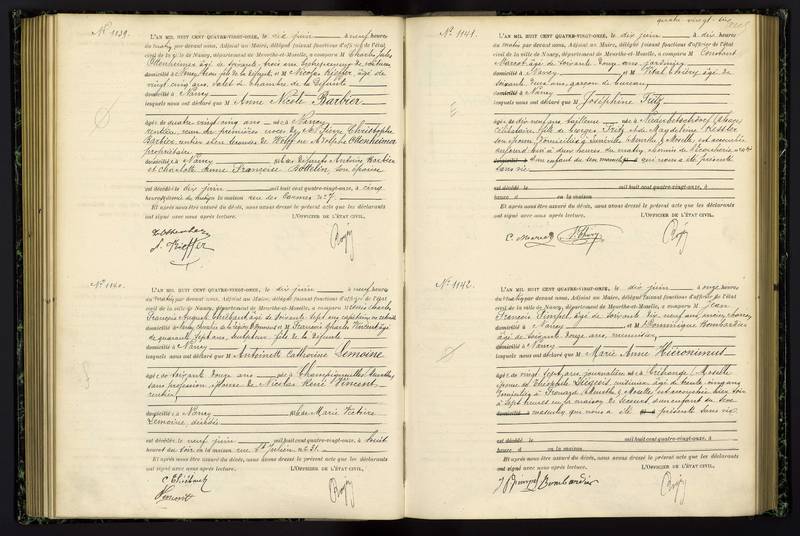 N° 1139.
L'AN MIL HUIT CENT QUATRE-VINGT-ONZE, le dix juin à neuf heures
du matin par devant nous, Adjoint au Maire, délégué faisant fonctions d'officier de l'état
civil de la ville de Nancy, département de Meurthe-et-Moselle, a comparu M Charles Jules
Ottenheimer âgé de soixante trois ans
domicilié à Nancy, beau fils de la défunte, et M Nicolas Kieffer, âgé de
vingt cinq ans, valet de chambre de la défunte
domicilié à Nancy
lesquels nous ont déclaré que M Anne Nicole Barbier
âgée de quatre vingt cinq ans née à Nancy
rentière, veuve de premières noces de Christophe
Barbier, rentier et en secondes de Wolff Adolphe Ottenheimer
propriétaire
domiciliée à Nancy fille des défunts Antoine Barbier
et Charlotte Anne Françoise Dottelin son épouse
est décédée le dix juin mil huit cent quatre-vingt-onze, à cinq
heures du matin en la maison rue des Carmes n° 7.
Et après nous être assuré du décès, nous avons dressé le présent acte que les déclarants
ont signé avec nous après lecture. L'OFFICIER DE L'ÉTAT CIVIL,
N. Kieffer
N° 1140.
L'AN MIL HUIT CENT QUATRE-VINGT-ONZE, le dix juin à neuf heures
du matin par devant nous, Adjoint au Maire, délégué faisant fonctions d'officier de l'état
civil de la ville de Nancy, département de Meurthe-et-Moselle, a comparu M Louis Charles
François Auguste Thiébaut âgé de soixante sept ans capitaine en retraite
domicilié à Nancy, chevalier de la Légion d'Honneur et M François Charles Vincent âgé
de quarante sept ans, sculpteur, fils de la défunte
domicilié à Nancy
lesquels nous ont déclaré que M Antoinette Catherine Lemoine
âgée de soixante douze ans née à Champigneulles, Meurthe,
sans profession, épouse de Nicolas René Vincent
rentier
domiciliée à Nancy fille de Marie Victoire
Lemoine, décédée
est décédée le neuf juin mil huit cent quatre-vingt-onze, à huit
heures du soir en la maison rue St Julien n° 31.
Et après nous être assuré du décès, nous avons dressé le présent acte que les déclarants
ont signé avec nous après lecture. L'OFFICIER DE L'ÉTAT CIVIL,
C Thiébaut
Vincent
quatre vingt-dix
N° 1141.
L'AN MIL HUIT CENT QUATRE-VINGT-ONZE, le dix juin à dix heures
du matin par devant nous, Adjoint au Maire, délégué faisant fonctions d'officier de l'état
civil de la ville de Nancy, département de Meurthe-et-Moselle, a comparu M Constant
Marcot âgé de soixante douze ans, jardinier
domicilié à Nancy et M Vital Thiéry âgé de
soixante deux ans, garçon de bureau
domicilié à Nancy
lesquels nous ont déclaré que M Joséphine Fritz
âgée de dix neuf ans, tailleuse née à Niederbetschdorf (Alsace)
célibataire fille de Georges Fritz et de Magdeleine Kessler
son épouse, domiciliés à Lunéville (Meurthe & Moselle) est accouchée
aujourd'hui à deux heures du matin, chemin de
d'un enfant du sexe masculin qui nous a été présenté
sans vie
est décédé le mil huit cent quatre-vingt-onze, à
heures d en la maison
Et après nous être assuré du décès, nous avons dressé le présent acte que les déclarants
ont signé avec nous après lecture. L'OFFICIER DE L'ÉTAT CIVIL,
C. Marcot V. Thiéry
N° 1142.
L'AN MIL HUIT CENT QUATRE-VINGT-ONZE, le dix juin à onze heures
du matin par devant nous, Adjoint au Maire, délégué faisant fonctions d'officier de l'état
civil de la ville de Nancy, département de Meurthe-et-Moselle, a comparu M Jean
François Pimpel âgé de soixante dix neuf ans
domicilié à Nancy et M Dominique Bombardier
âgé de soixante douze ans, menuisier
domicilié à Nancy
lesquels nous ont déclaré que M Marie Anne Hieronimus
âgée de vingt sept ans, journalière née à Créhange, Moselle
épouse de Théophile Liegeois, cuisinier, âgé de trente cinq ans
domiciliés à Frouard (Meurthe & Moselle) est accouchée hier soir
à sept heures en la maison de secours d'un enfant du sexe
masculin qui nous a été présenté sans vie
est décédé le mil huit cent quatre-vingt-onze, à
heures d en la maison
Et après nous être assuré du décès, nous avons dressé le présent acte que les déclarants
ont signé avec nous après lecture. L'OFFICIER DE L'ÉTAT CIVIL,
Pimpel Bombardier